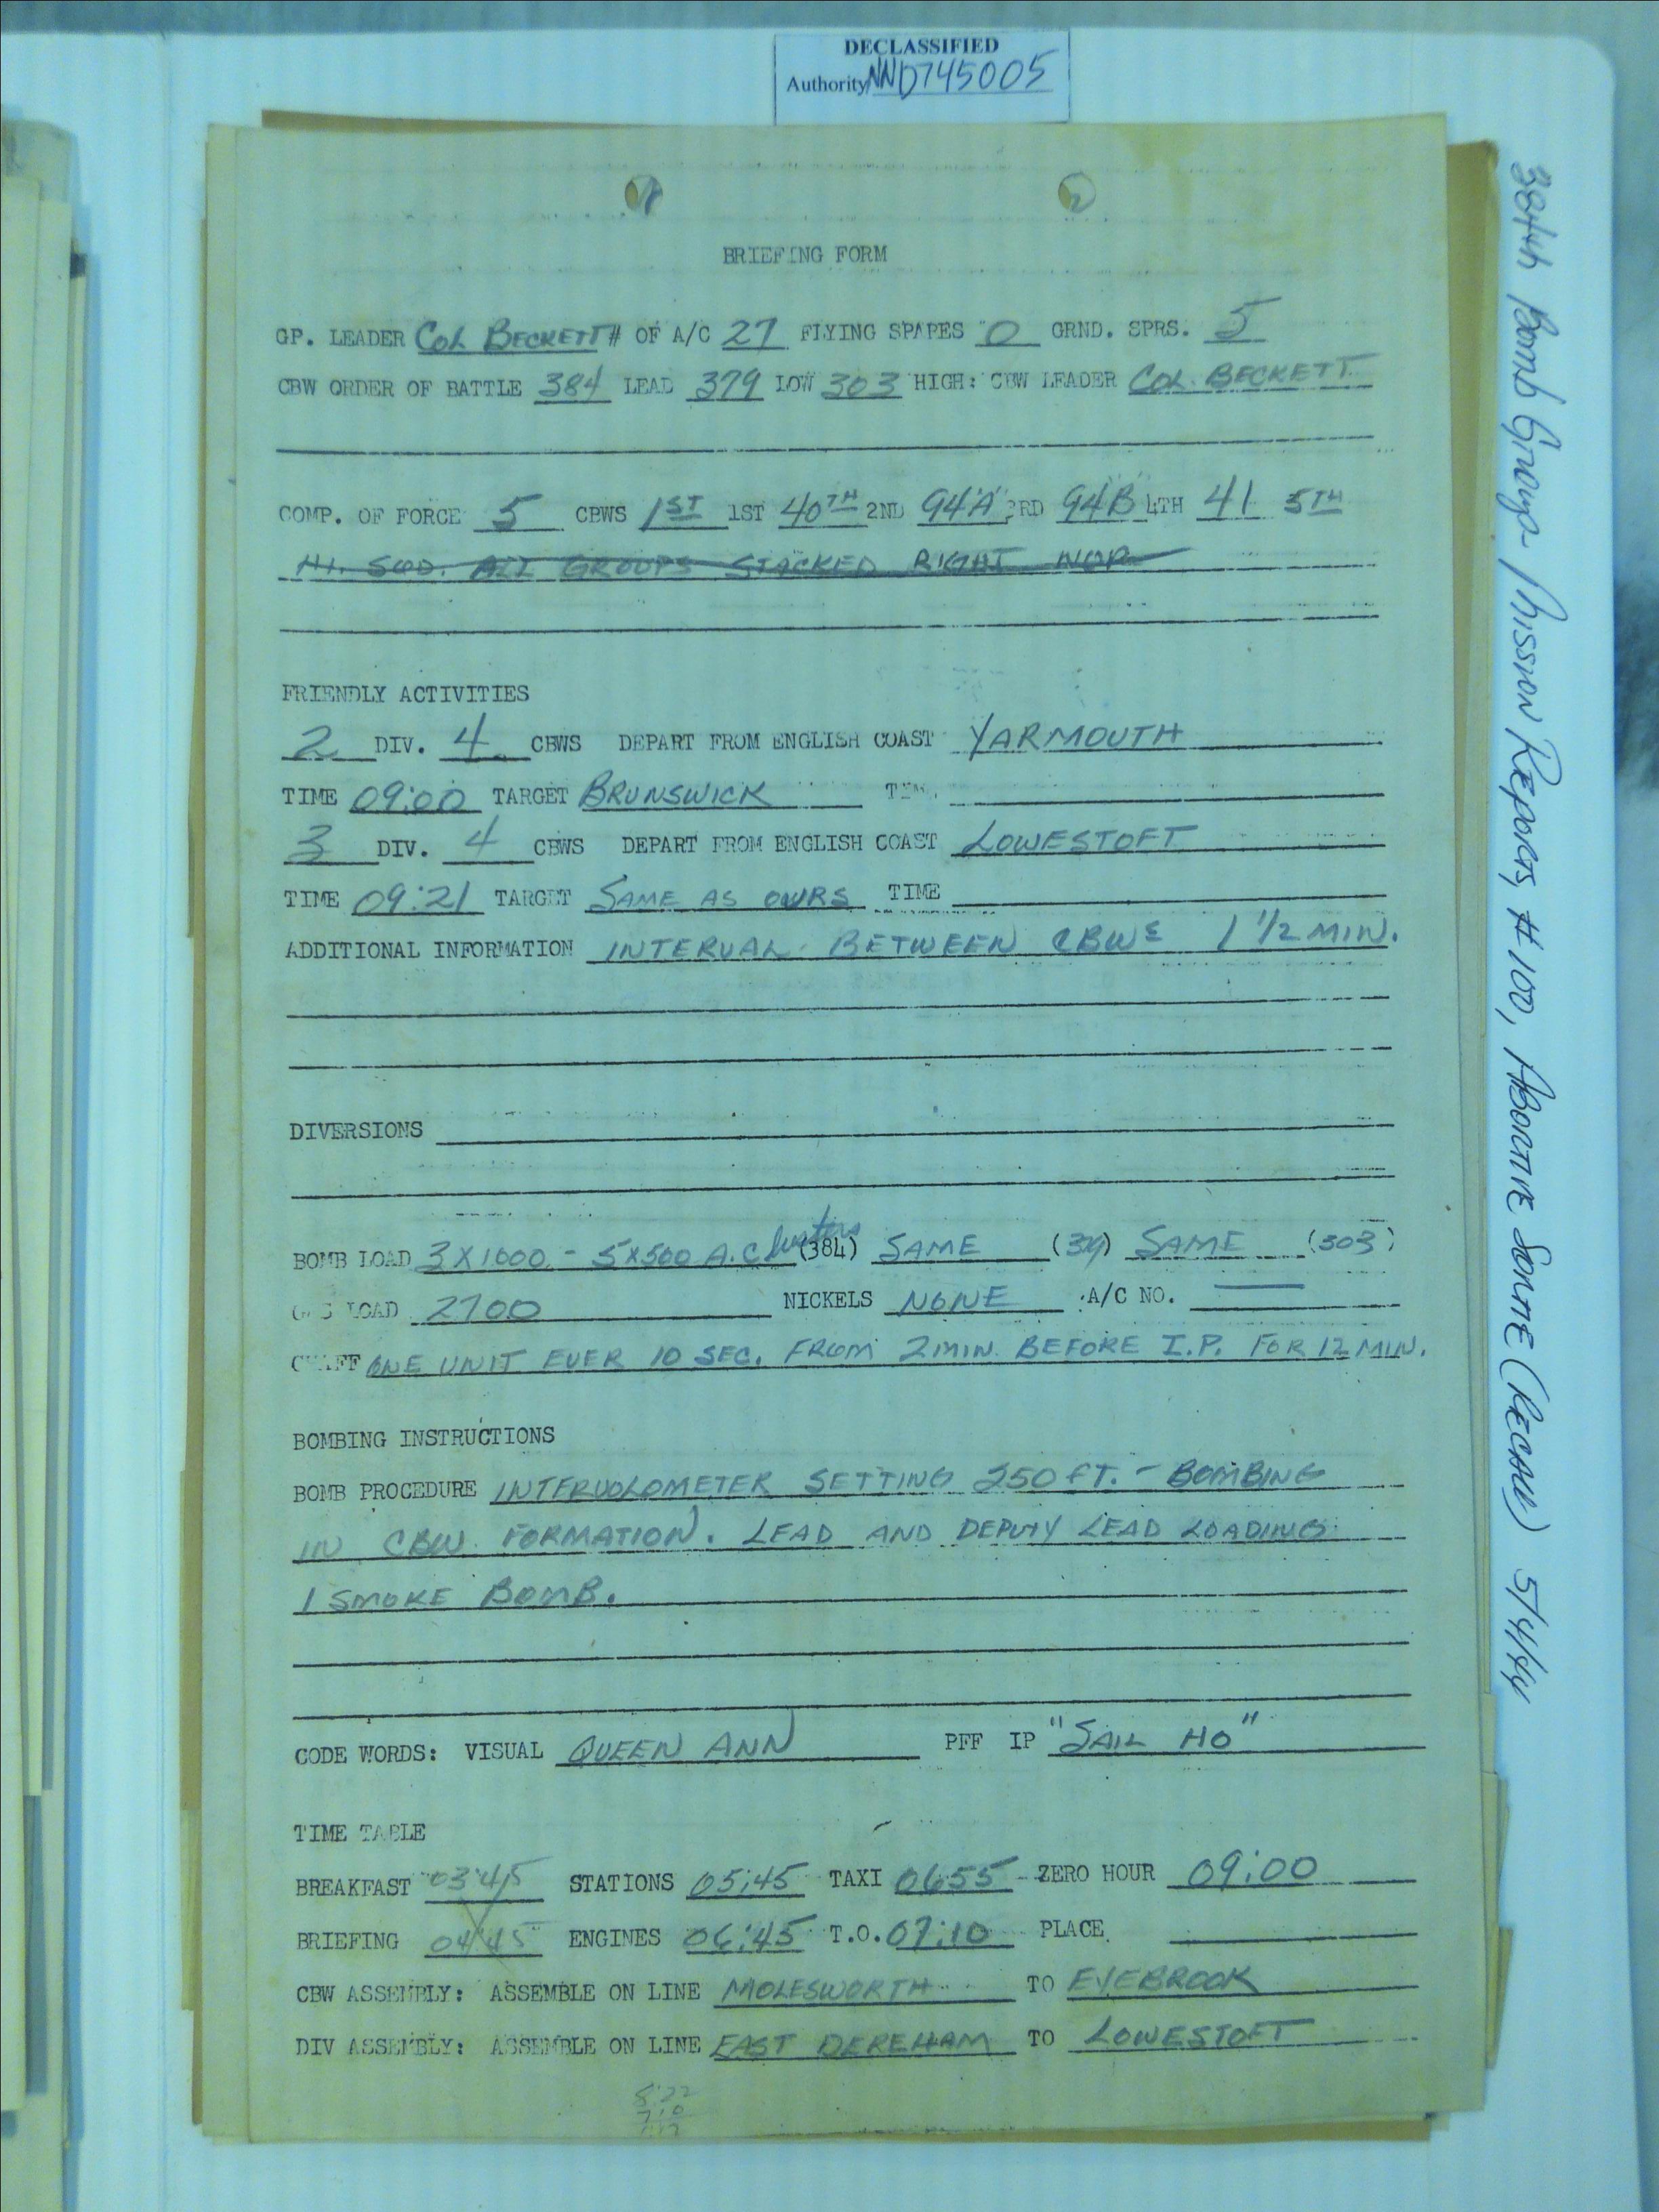 DECLASSIFIED
Authority NND745005
BRIEFING FORM
GP. LEADER COL BECKETT # OF A/C 27 FLYING SPARES 0 GRND. SPRS. 5
CBW ORDER OF BATTLE 384 LEAD 379 LOW 303 HIGH: CBW LEADER COL. BECKETT
COMP. OF FORCE 5 CBWS 1ST 1ST 40TH 2ND 94'A' 3RD 94'B' 4TH 41 5TH
HI. SQD. ALL GROUPS STACKED RIGHT
FRIENDLY ACTIVITIES
2 DIV. 4 CBWS DEPART FROM ENGLISH COAST YARMOUTH
TIME 09:00 TARGET BRUNSWICK
3 DIV. 4 CBWS DEPART FROM ENGLISH COAST LOWESTOFT
TIME 09:21 TARGET SAME AS OURS TIME
ADDITIONAL INFORMATION INTERVAL BETWEEN CBWS 1 1/2 MIN.
DIVERSIONS
BOMB LOAD 3X1000 - 5X500 A.C lusters (384) SAME (379) SAME (303)
GAS LOAD 2700 NICKELS NONE A/C NO. —
CHAFF ONE UNIT EVER 10 SEC. FROM 2 MIN. BEFORE I.P. FOR 12 MIN.
BOMBING INSTRUCTIONS
BOMB PROCEDURE INTERVOLOMETER SETTING 250 FT. - BOMBING
IN CBW FORMATION. LEAD AND DEPUTY LEAD LOADING
1 SMOKE BOMB.
CODE WORDS: VISUAL QUEEN ANN PFF IP "SAIL HO"
TIME TABLE
BREAKFAST 03:45 STATIONS 05:45 TAXI 0655 ZERO HOUR 09:00
BRIEFING 04:45 ENGINES 06:45 T.O. 07:10 PLACE
CBW ASSEMBLY: ASSEMBLE ON LINE MOLESWORTH TO EYEBROOK
DIV ASSEMBLY: ASSEMBLE ON LINE EAST DEREHAM TO LOWESTOFT
8:22
7:10
384th Bomb Group - Mission Reports, #100, ABORTIVE SORTIE (RECALL) 5/4/44